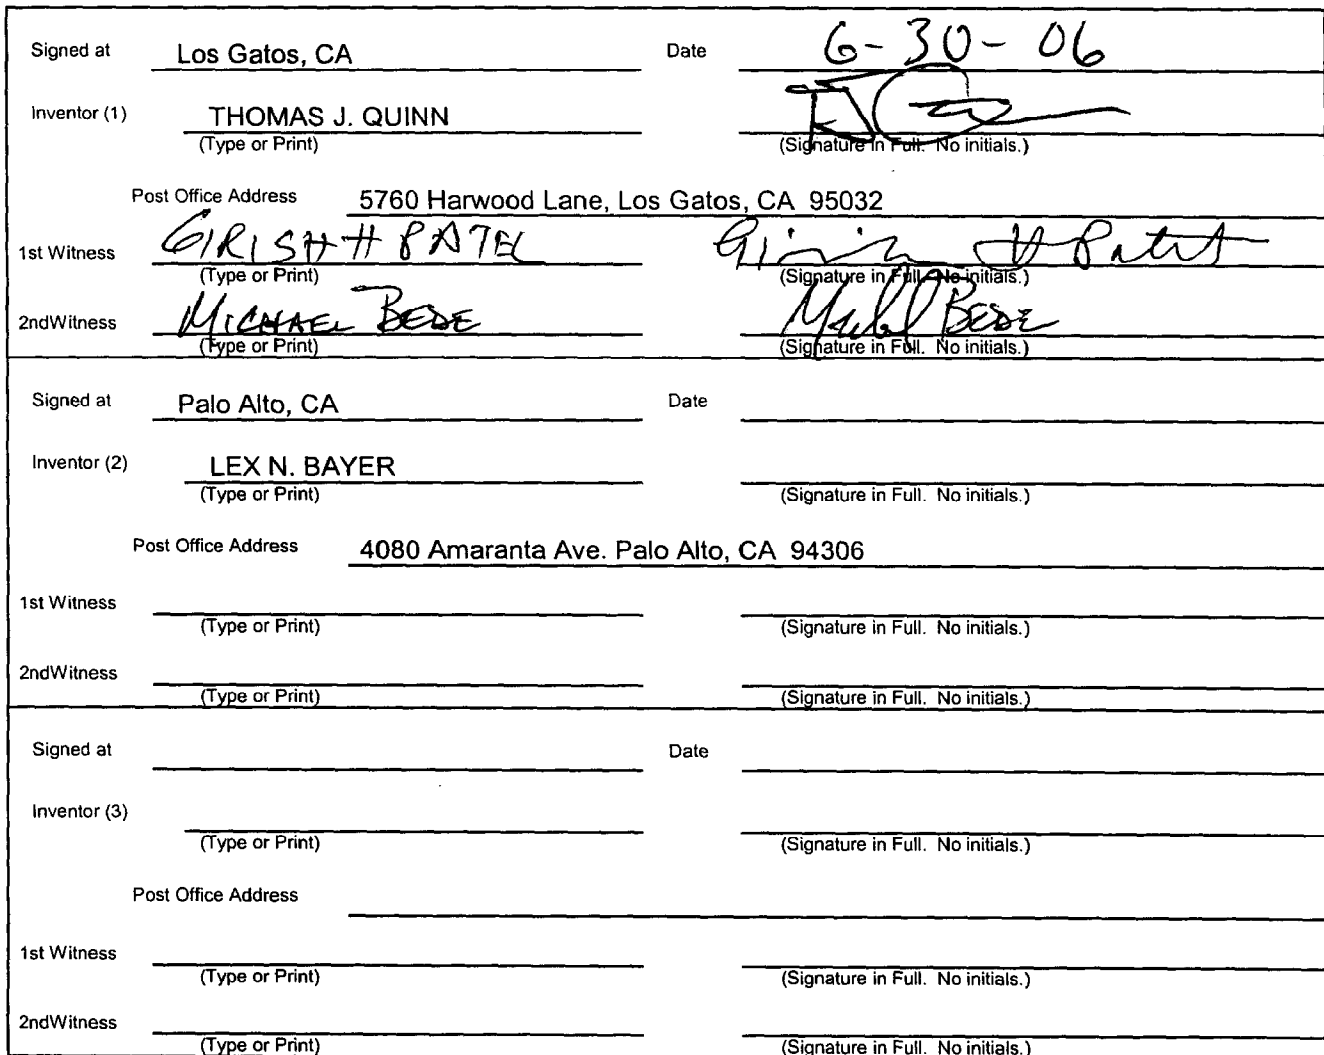 Signed at Los Gatos, CA Date 6-30-06
Inventor (1) THOMAS J. QUINN
(Type or Print) (Signature in Full. No initials.)
Post Office Address 5760 Harwood Lane, Los Gatos, CA 95032
1st Witness GIRISH H PATEL Girish H Patel
(Type or Print) (Signature in Full. No initials.)
2ndWitness MICHAEL BEDE Michael BEDE
(Type or Print) (Signature in Full. No initials.)
Signed at Palo Alto, CA Date
Inventor (2) LEX N. BAYER
(Type or Print) (Signature in Full. No initials.)
Post Office Address 4080 Amaranta Ave. Palo Alto, CA 94306
1st Witness
(Type or Print) (Signature in Full. No initials.)
2ndWitness
(Type or Print) (Signature in Full. No initials.)
Signed at Date
Inventor (3)
(Type or Print) (Signature in Full. No initials.)
Post Office Address
1st Witness
(Type or Print) (Signature in Full. No initials.)
2ndWitness
(Type or Print) (Signature in Full. No initials.)